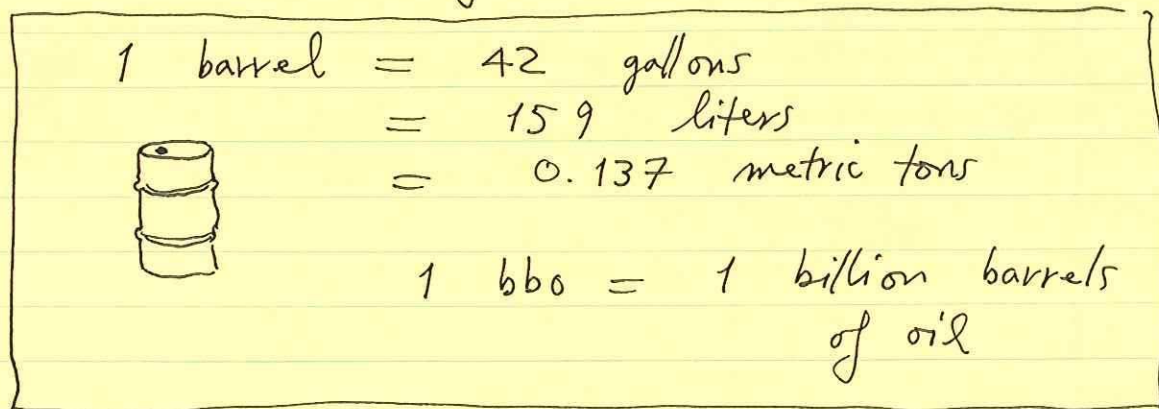 1 barrel = 42 gallons
= 159 liters
= 0.137 metric tons
1 bbo = 1 billion barrels
of oil